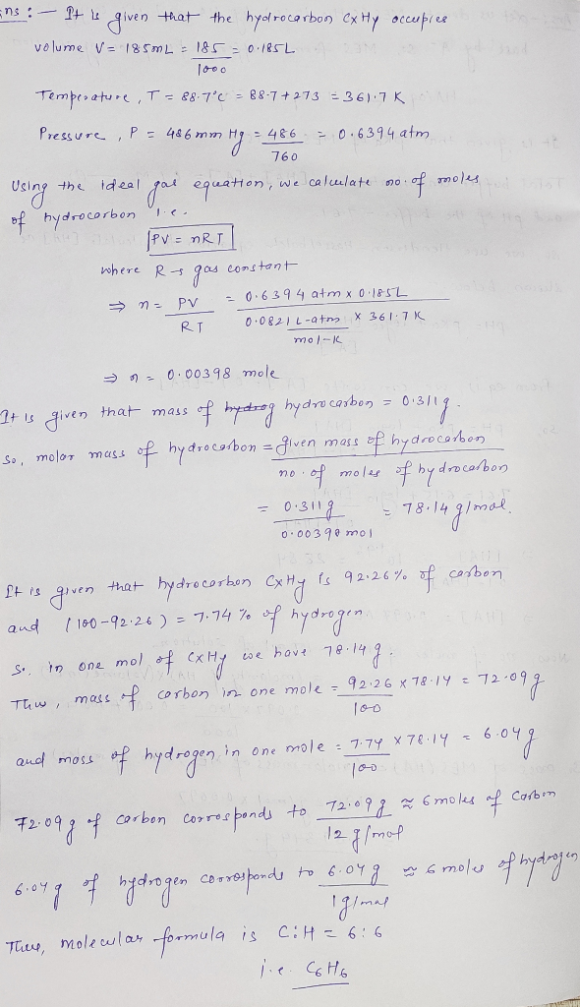 ns : — It is given that the hydrocarbon CxHy occupies
volume V = 185mL = 185/1000 = 0.185L
Temperature, T = 88.7°C = 88.7+273 = 361.7 K
Pressure, P = 486 mm Hg = 486/760 = 0.6394 atm
Using the ideal gas equation, we calculate no. of moles
of hydrocarbon i.e.
PV = nRT
where R → gas constant
⇒ n = PV/RT = 0.6394 atm x 0.185L / 0.0821 L-atm/mol-K x 361.7 K
⇒ n = 0.00398 mole
It is given that mass of hydrocarbon = 0.311g.
So, molar mass of hydrocarbon = given mass of hydrocarbon / no. of moles of hydrocarbon
= 0.311g / 0.00398 mol = 78.14 g/mol.
It is given that hydrocarbon CxHy is 92.26% of carbon
and (100-92.26) = 7.74 % of hydrogen
So in one mol of CxHy we have 78.14 g.
Thus, mass of carbon in one mole = 92.26/100 x 78.14 = 72.09 g
and mass of hydrogen in one mole = 7.74/100 x 78.14 = 6.04 g
72.09 g of carbon corresponds to 72.09 g / 12 g/mol ≈ 6 moles of carbon
6.04 g of hydrogen corresponds to 6.04 g / 1 g/mol ≈ 6 moles of hydrogen
Thus, molecular formula is C:H = 6:6
i.e. C6H6